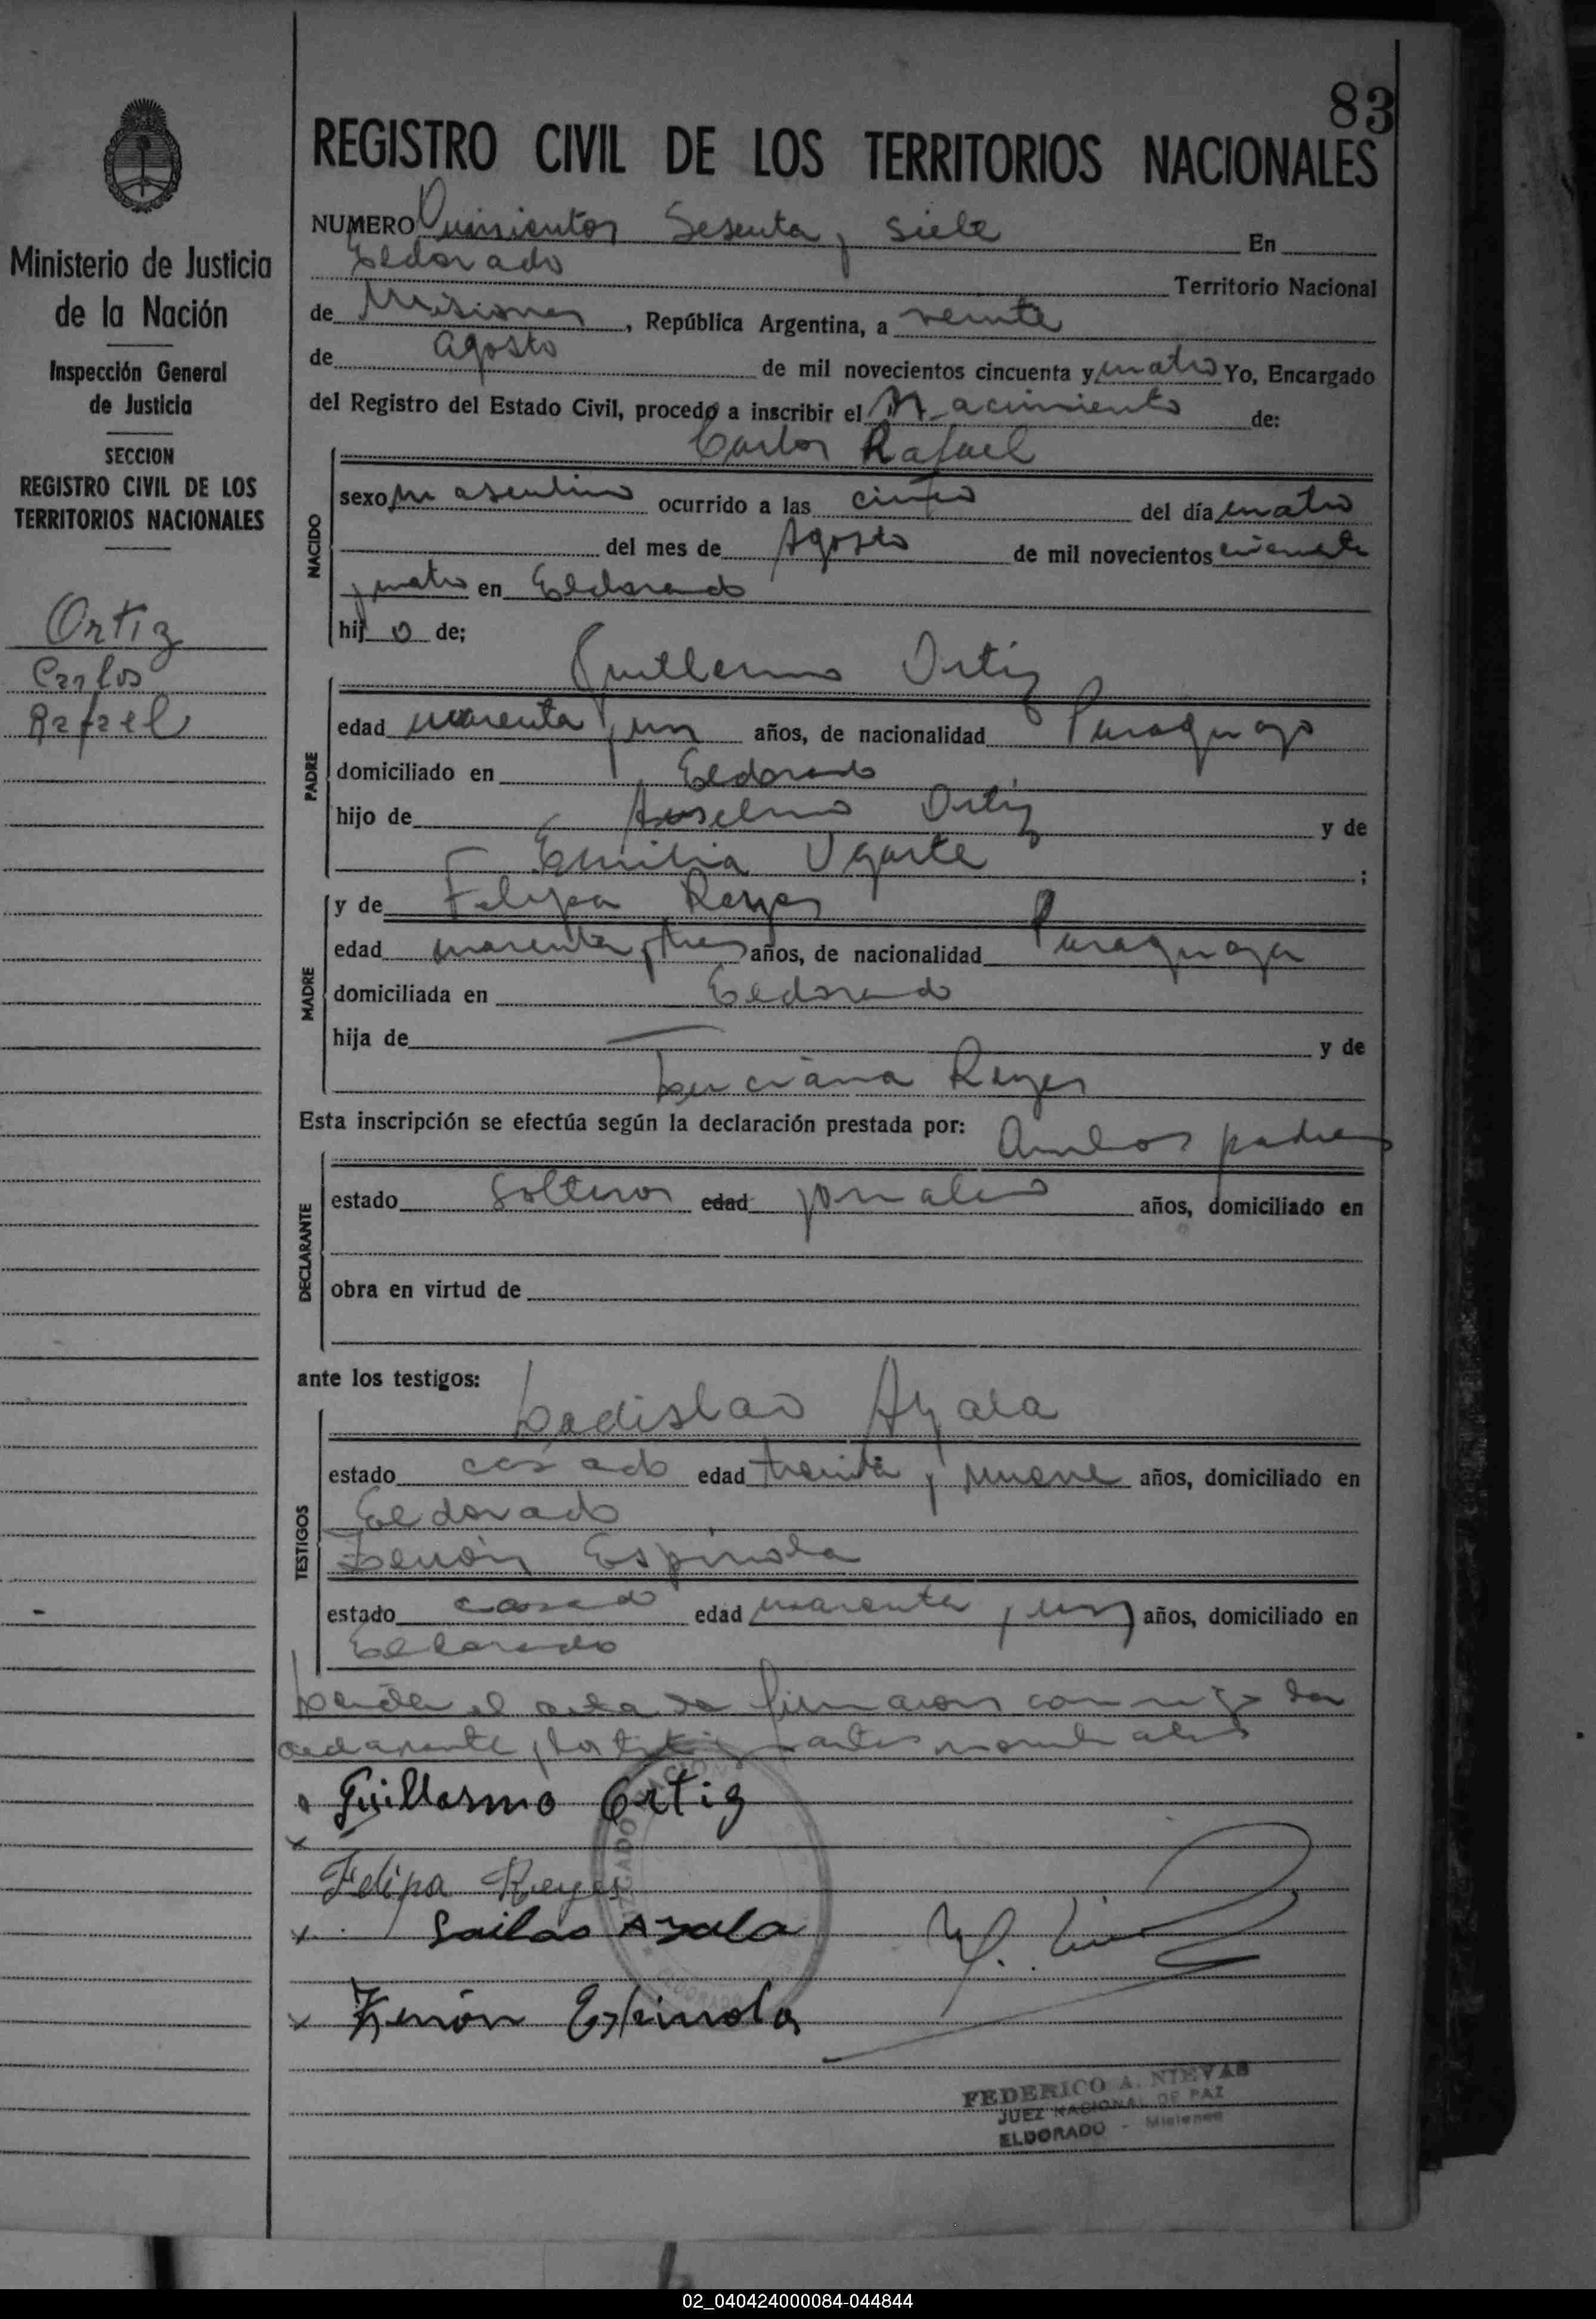 83
REGISTRO CIVIL DE LOS TERRITORIOS NACIONALES
Ministerio de Justicia
de la Nación
Inspección General
de Justicia
SECCION
REGISTRO CIVIL DE LOS
TERRITORIOS NACIONALES
Ortiz
Carlos
Rafael
NUMERO Quinientos Sesenta y siete En
Eldorado
Territorio Nacional
de Misiones, República Argentina, a veinte
de agosto de mil novecientos cincuenta y cuatro Yo, Encargado
del Registro del Estado Civil, procedo a inscribir el Nacimiento de:
Carlos Rafael
NACIDO
sexo masculino ocurrido a las cinco del día cuatro
del mes de Agosto de mil novecientos cincuenta
y cuatro en Eldorado
hijo de;
Guillermo Ortiz
PADRE
edad cuarenta y un años, de nacionalidad Paraguayo
domiciliado en Eldorado
hijo de Anselmo Ortiz y de
Emilia Ugarte ;
MADRE
y de Felipa Reyes
edad cuarenta y tres años, de nacionalidad Paraguaya
domiciliada en Eldorado
hija de — y de
Luciana Reyes
Esta inscripción se efectúa según la declaración prestada por: Ambos padres
DECLARANTE
estado Solteros edad jornalero años, domiciliado en
obra en virtud de
ante los testigos:
Ladislao Ayala
TESTIGOS
estado casado edad treinta y nueve años, domiciliado en
Eldorado
Zenón Espinola
estado casado edad cuarenta y un años, domiciliado en
Eldorado
Leída el acta la firmaron conmigo los
declarante y los testigos antes nombrados
Guillermo Ortiz
Felipa Reyes
Ayala
Zenón Espinola
FEDERICO A. NIEVAS
JUEZ NACIONAL DE PAZ
ELDORADO - Misiones
02_040424000084-044844